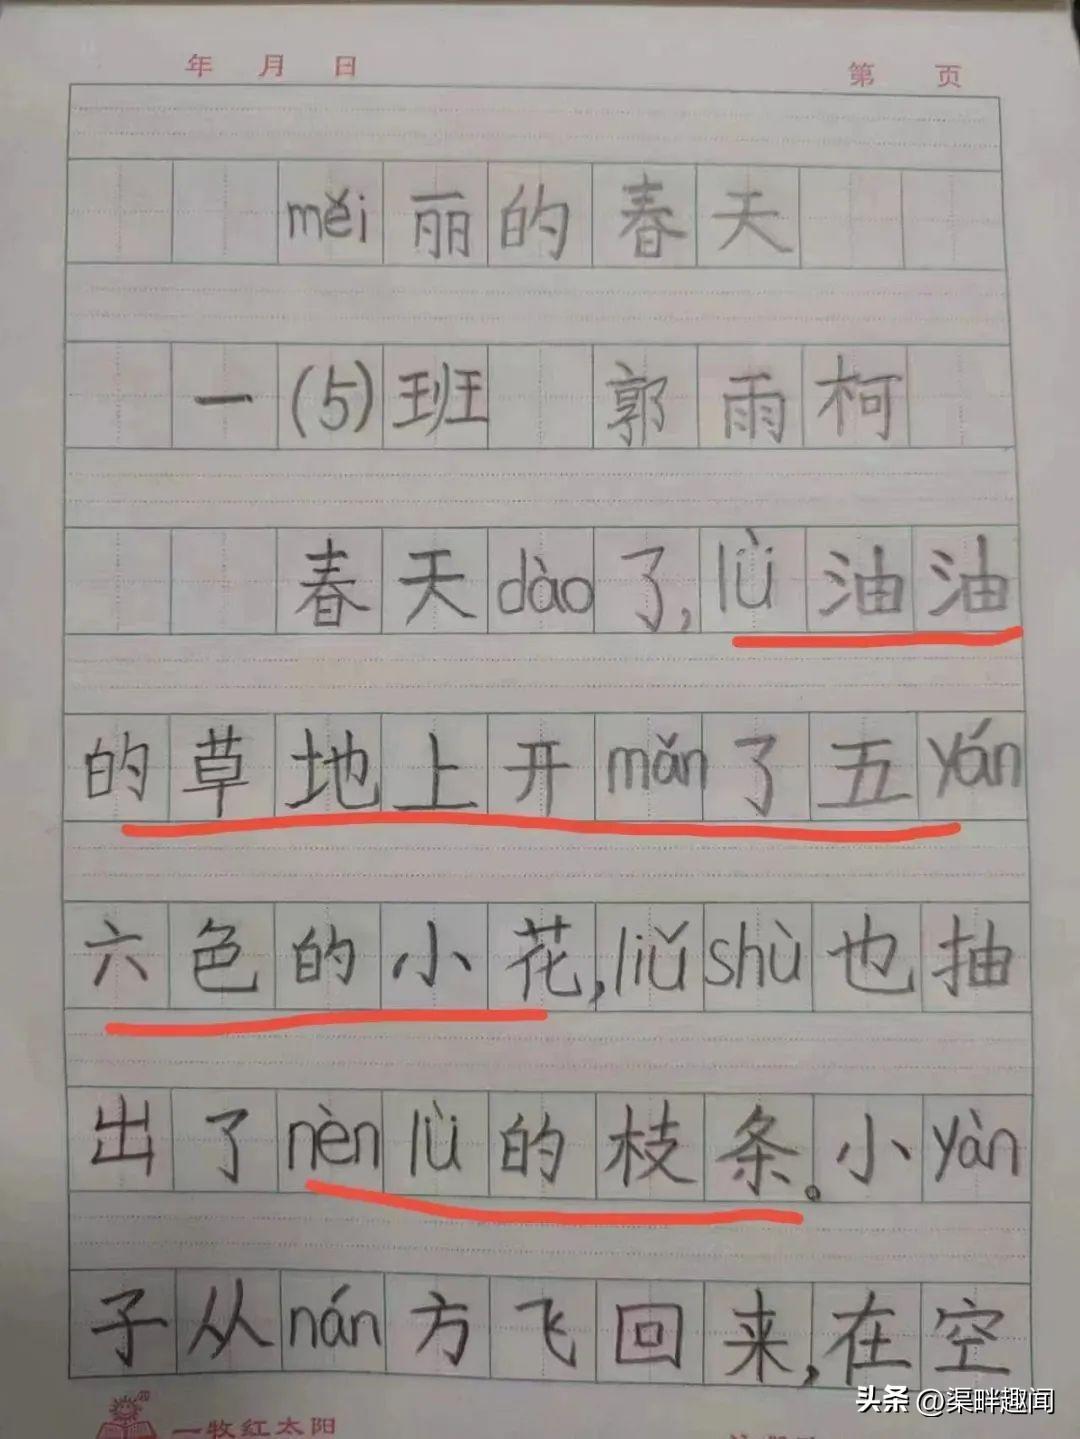 年 月 日 第 页
měi丽的春天
一(5)班 郭雨柯
春天dào了,lǜ油油
的草地上开mǎn了五yán
六色的小花,liǔshù也抽
出了nènlǜ的枝条。小yàn
子从nán方飞回来,在空
一牧红太阳
头条 @渠畔趣闻